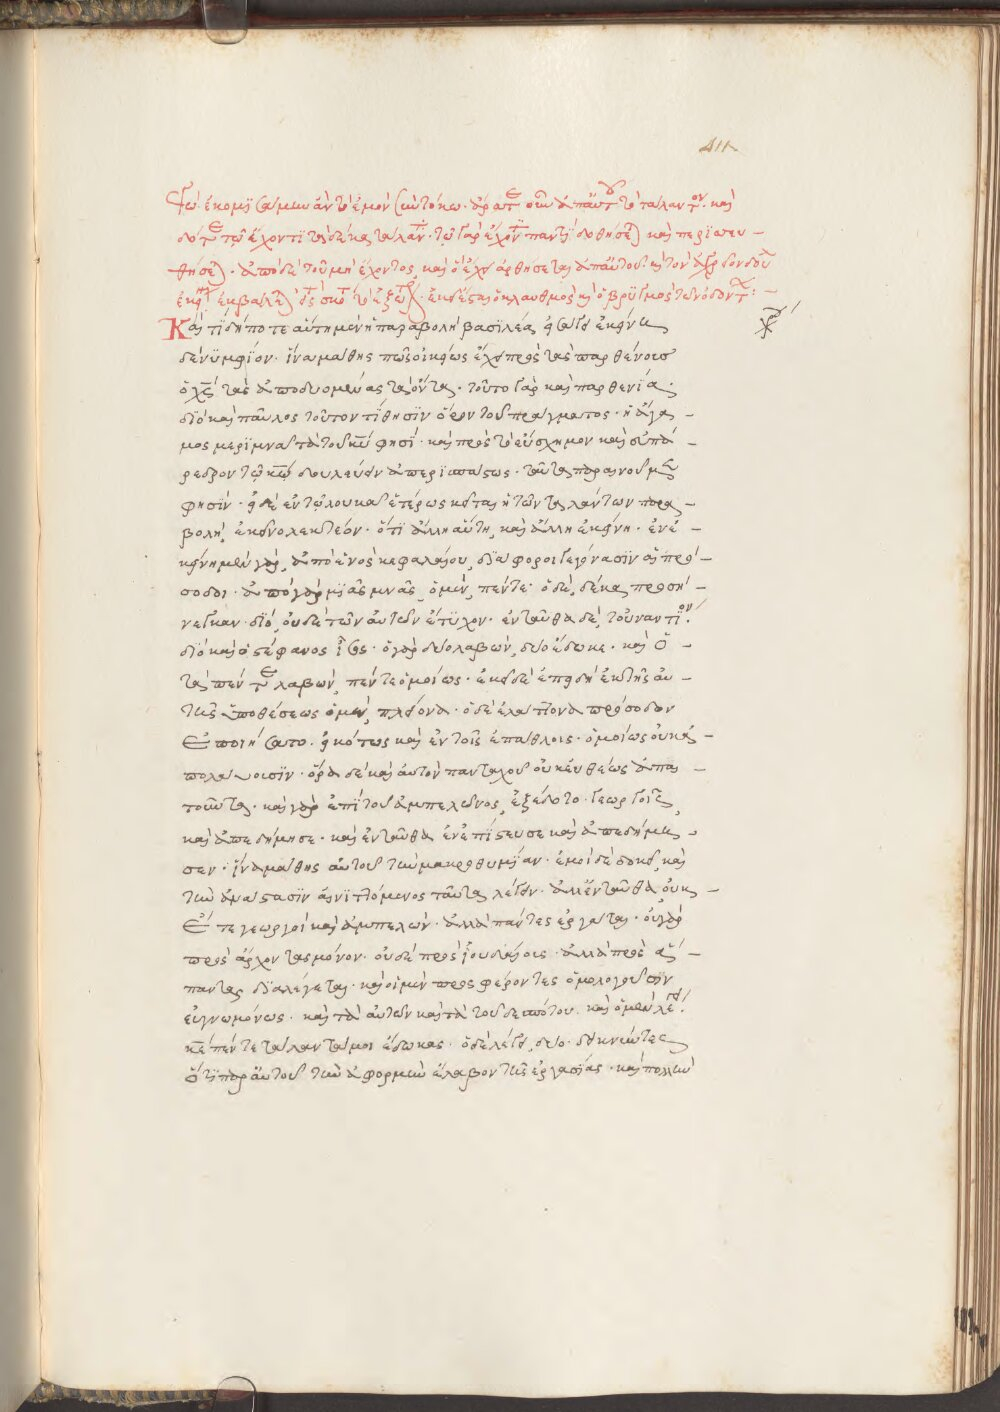 411
ἐγὼ ἐκομισάμην ἂν τὸ ἐμὸν σὺν τόκω· ἄρατε οὖν ἀπ' αὐτοῦ τὸ τάλαντον· καὶ
δότε τῷ ἔχοντι τὰ δέκα τάλαντα· τῷ γὰρ ἔχοντι παντὶ δοθήσεται καὶ περισσευ –
θήσεται· ἀπὸ δὲ τοῦ μὴ ἔχοντος, καὶ ὃ ἔχει ἀρθήσεται ἀπ' αὐτοῦ· καὶ τὸν ἀχρεῖον δοῦλον
ἐκβάλετε εἰς τὸ σκότος τὸ ἐξώτερον· ἐκεῖ ἔσται ὁ κλαυθμὸς καὶ ὁ βρυγμὸς τῶν ὀδόντων: –
Καὶ τί δήποτε αὕτη μὲν ἡ παραβολὴ βασιλέα εἰσάγει ἐκείνη
δὲ νυμφίον· ἵνα μάθης πῶς οἰκείως ἔχει πρὸς τὰς παρθένους
ὁ χς τὰς ἀποδυομένας τὰ ὄντα· τοῦτο γὰρ καὶ παρθενία·
διὸ καὶ παῦλος τοῦτον τίθησιν ὅρον τοῦ πράγματος· ἡ ἄγα –
μος μεριμνᾶ τὰ τοῦ κυ φησί· καὶ πρὸς τὸ εὔσχημον καὶ εὐπά
ρεδρον τῷ κω δουλεύειν ἀπερισπάστως· ταῦτα παραινοῦμεν
φησίν· εἰ δὲ ἐν τῷ λουκᾶ ἑτέρως κεῖται ἡ τῶν ταλάντων παρα –
βολή, ἐκεῖνο λεκτέον· ὅτι ἄλλη αὕτη, καὶ ἄλλη ἐκείνη· ἐν ἐ –
κείνη μὲν γὰρ, ἀπὸ ἑνὸς κεφαλαίου, διάφοροι γεγόνασιν αἱ πρό –
σοδοι· ἀπὸ γὰρ μιᾶς μνᾶς, ὁ μὲν, πέντε· ὁ δὲ, δέκα προσή –
νεγκαν· διὸ, οὐδὲ τῶν αὐτῶν ἔτυχον· ἐνταῦθα δὲ, τοὐναντίον·
διὸ καὶ ὁ στέφανος ἴσος· ὁ γὰρ δύο λαβὼν, δύο ἔδωκε· καὶ ὁ –
τὰ πέντε λαβὼν, πέντε ὁμοίως· ἐκεῖ δὲ ἐπειδὴ ἐκ τῆς αὐ –
τῆς ὑποθέσεως ὁ μὲν, πλείονα· ὁ δὲ ἐλάττονα πρόσοδον
ἐποιήσατο· εἰκότως καὶ ἐν τοῖς ἐπάθλοις· ὁμοίως οὐκ ἀ –
πολαύουσιν· ὅρα δὲ καὶ αὐτὸν πανταχοῦ οὐκ εὐθέως ἀπαι –
τοῦντα· καὶ γὰρ ἐπὶ τοῦ ἀμπελῶνος, ἐξέδοτο· γεωργοῖς
καὶ ἀπεδήμησε· καὶ ἐνταῦθα ἐνεπίστευσε καὶ ἀπεδήμη –
σεν· ἵνα μάθης αὐτοῦ τὴν μακροθυμίαν· ἐμοὶ δὲ δοκεῖ, καὶ
τὴν ἀνάστασιν αἰνιττόμενος ταῦτα λέγειν· ἀλλ' ἐνταῦθα, οὐκ –
έτι γεωργοὶ καὶ ἀμπελών· ἀλλὰ πάντες ἐργάται· οὐ γὰρ
πρὸς ἄρχοντας μόνον· οὐδὲ πρὸς ἰουδαίους· ἀλλὰ πρὸς ἅ –
παντας διαλέγεται· καὶ οἱ μὲν προσφέροντες ὁμολογοῦσιν
εὐγνωμόνως· καὶ τὰ αὐτῶν καὶ τὰ τοῦ δεσπότου· καὶ ὁ μὲν λέγει·
κε πέντε τάλαντά μοι ἔδωκας· ὁ δὲ λέγει, δύο· δεικνύντες
ὅτι παρ' αὐτοῦ τὴν ἀφορμὴν ἔλαβον τῆς ἐργασίας· καὶ πολλὴν